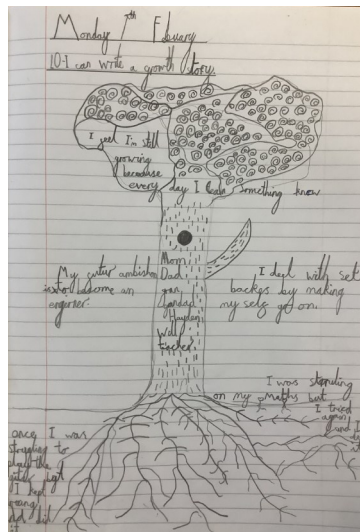 Monday 7th Fbuary
10-I can write a growth story.
I feel I'm still
growing
because
every day I learn something know
Mom
Dad
gran,
Grandad
Hayden
Well
teacher.
My futur ambishon
is to become an
enginer.
I deal with set
backs by making
my self go on.
I was struggling
on my maths but
I tried
again
and I
once I was
struggling to
play the
guiter but
I kept
going
and did
it